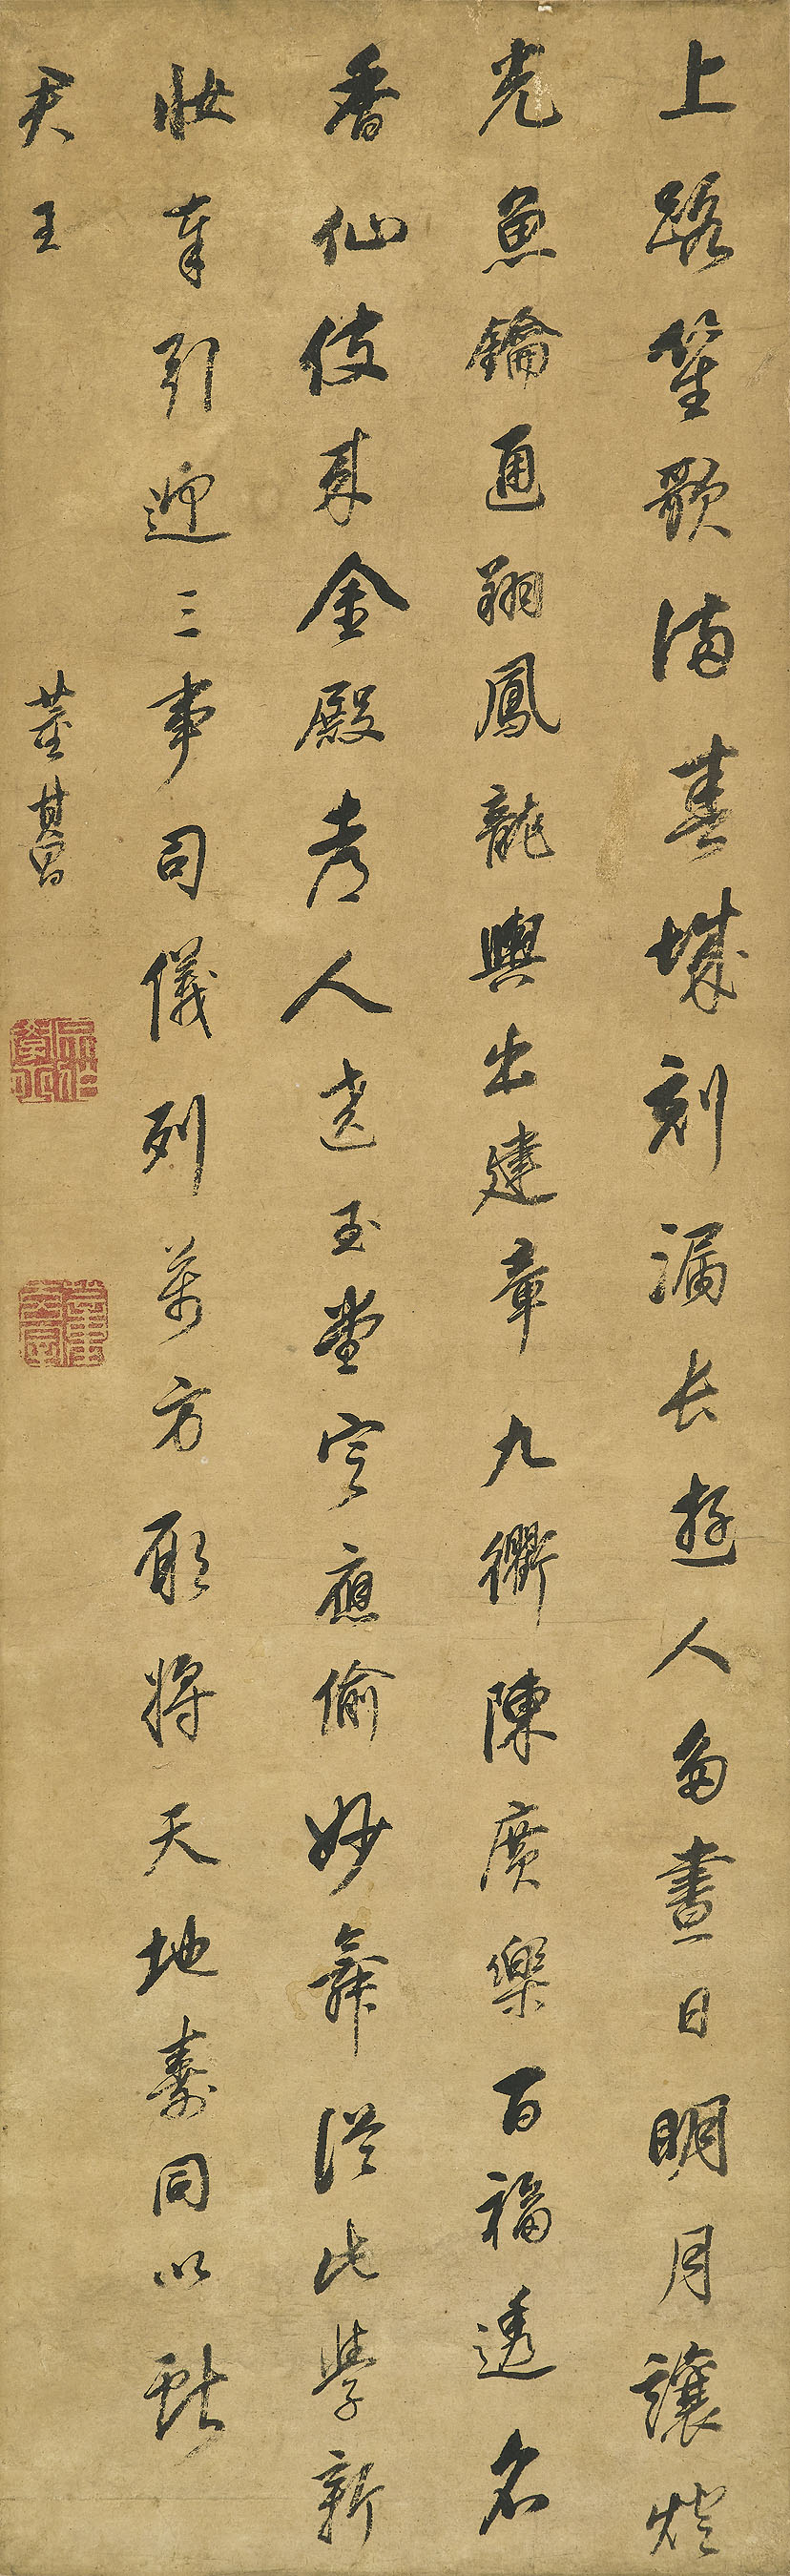 上路笙歌滿春城刻漏長遊人多晝日明月讓燈
光魚鑰通翔鳳龍輿出建章九衢陳廣樂百福透名
香仙伎來金殿都人遶玉堂定應偷妙舞從此學新
妝奉引迎三事司儀列萬方願將天地壽同以獻
君王
董其昌